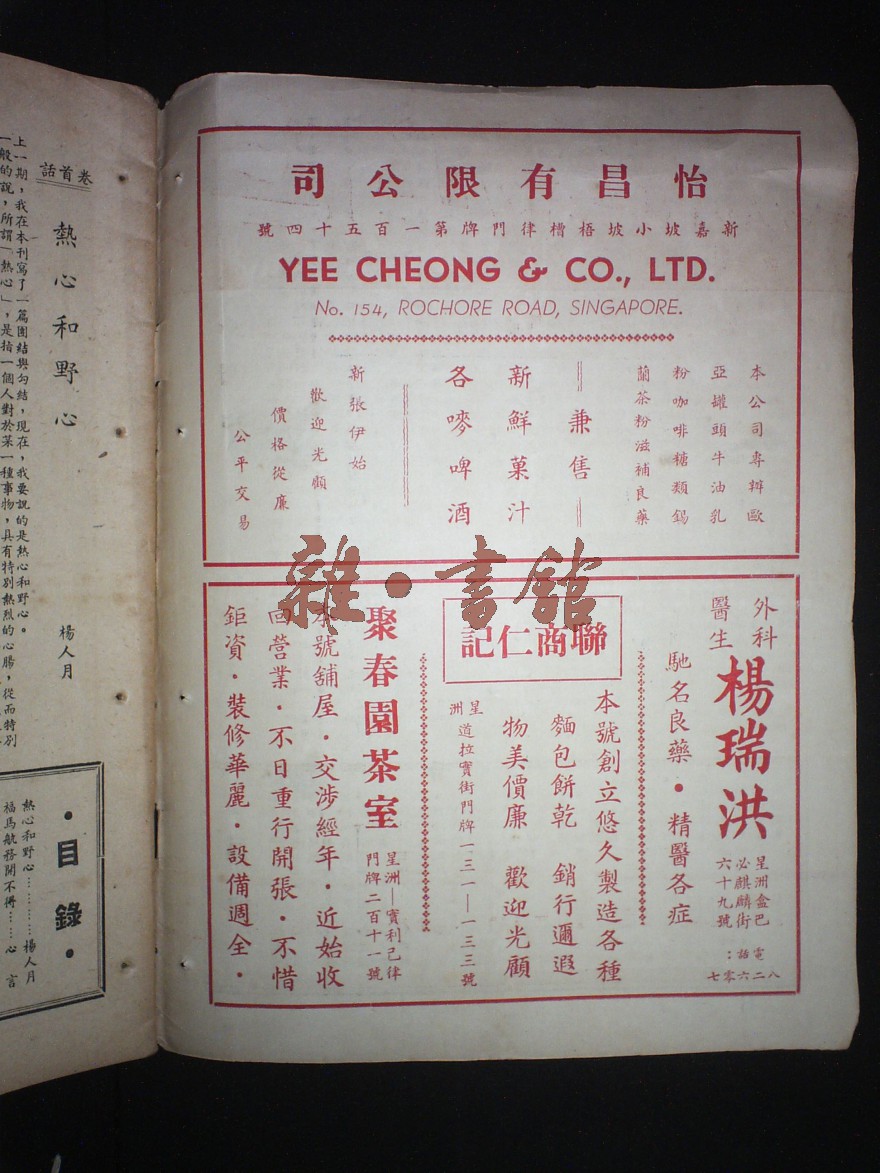 怡昌有限公司
新嘉坡小坡梧槽律門牌第一百五十四號
YEE CHEONG & CO., LTD.
No. 154, ROCHORE ROAD, SINGAPORE.
本公司專辦歐
亞罐頭牛油乳
粉咖啡糖類錫
蘭茶粉滋補良藥
兼售
新鮮菓汁
各嘜啤酒
新張伊始
歡迎光顧
價格從廉
公平交易
雜·書館
外科
醫生
楊瑞洪
星洲盒巴
必麒麟街
六十九號
電話：
八二六零七
馳名良藥·精醫各症
聯商仁記
本號創立悠久製造各種
麵包餅乾 銷行邇遐
物美價廉 歡迎光顧
星洲
道拉實街門牌一三一—一三三號
聚春園茶室
星洲—實利己律
門牌二百十一號
本號舖屋·交涉經年·近始收
回營業·不日重行開張·不惜
鉅資·裝修華麗·設備週全·
卷首話
熱心和野心
楊人月
上一期，我在本刊寫了一篇團結與勾結，現在，我要說的是熱心和野心。
一般的說，所謂「熱心」，是指一個人對於某一種事物，具有特別熱烈的心腸，從而特別
·目錄·
熱心和野心…………楊人月
福馬航務開不得……心言